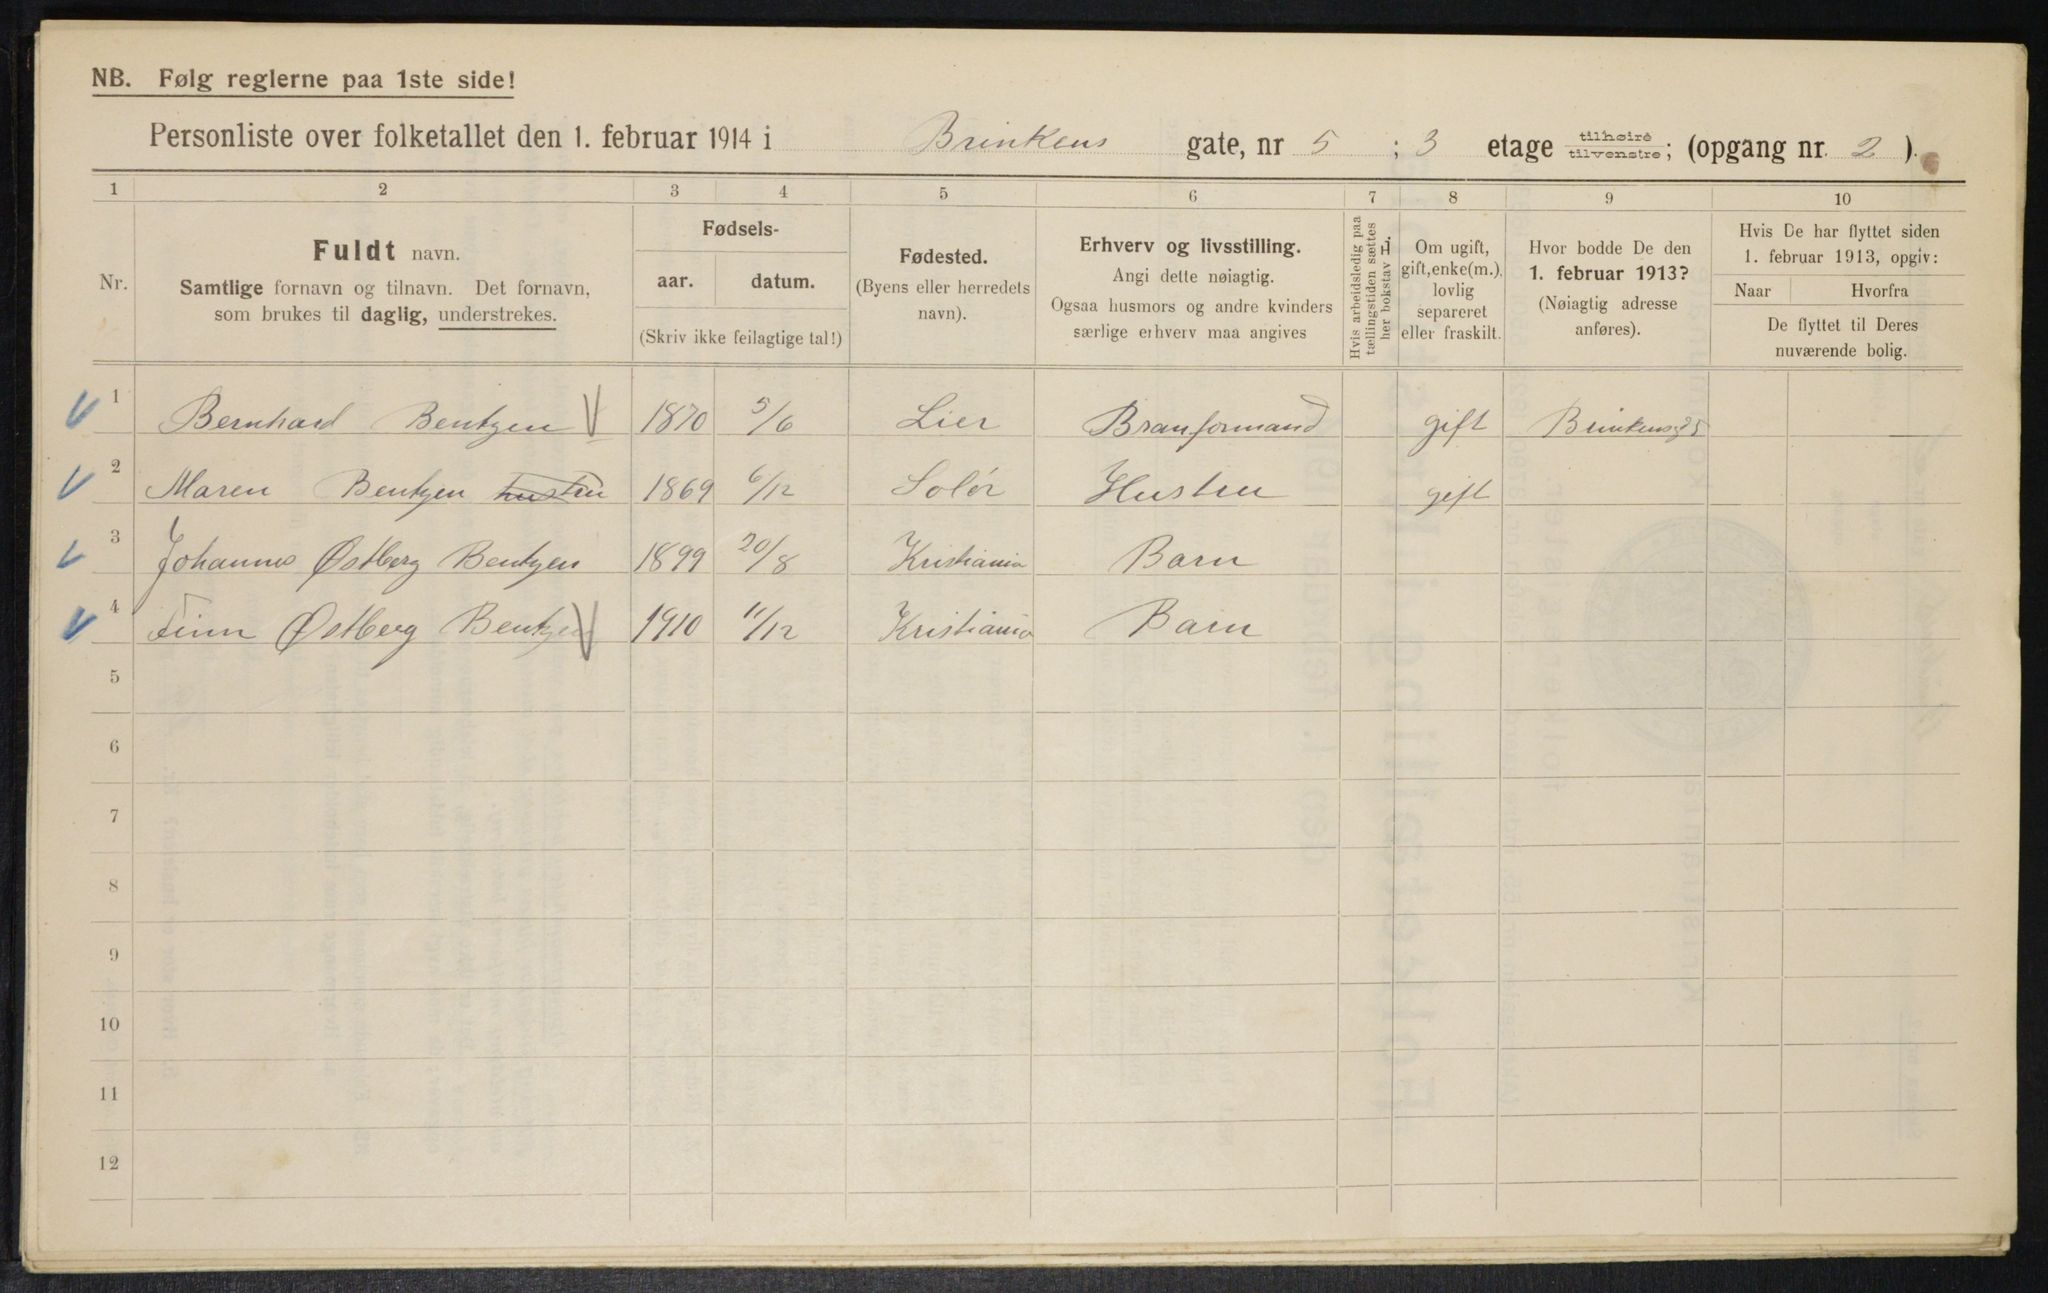 NB. Følg reglerne paa 1ste side!
Personliste over folketallet den 1. februar 1914 i Brinkens gate, nr 5 ; 3 etage tilhøire tilvenstre; (opgang nr. 2 ).
1 2 3 4 5 6 7 8 9 10
Nr.
Fuldt navn.
Samtlige fornavn og tilnavn. Det fornavn,
som brukes til daglig, understrekes.
Fødsels-
aar. datum.
(Skriv ikke feilagtige tal!)
Fødested.
(Byens eller herredets
navn).
Erhverv og livsstilling.
Angi dette nøiagtig.
Ogsaa husmors og andre kvinders
særlige erhverv maa angives
Hvis arbeidsledig paa
tællingstiden sættes
her bokstav L.
Om ugift,
gift, enke(m.),
lovlig
separeret
eller fraskilt.
Hvor bodde De den
1. februar 1913?
(Nøiagtig adresse
anføres).
Hvis De har flyttet siden
1. februar 1913, opgiv:
Naar Hvorfra
De flyttet til Deres
nuværende bolig.
1 Bernhard Bentzen 1870 5/6 Lier Branformand gift Brinkensg 5
2 Maren Bentzen hustru 1869 6/12 Solør Hustru gift
3 Johannes Østberg Bentzen 1899 20/8 Kristiania Barn
4 Finn Østberg Bentzen 1910 11/12 Kristiania Barn
5
6
7
8
9
10
11
12